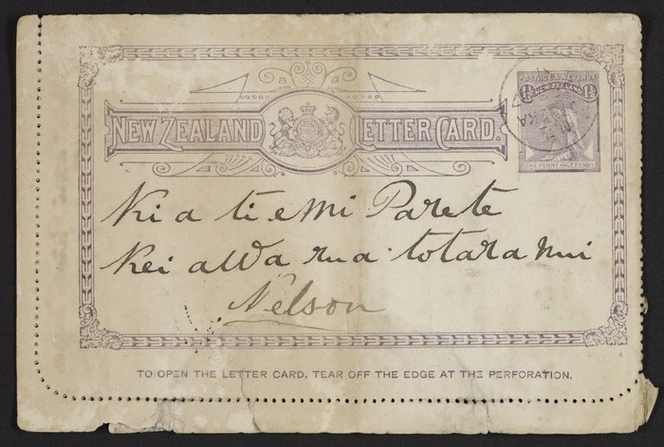 NEW ZEALAND LETTER CARD.
POSTAGE & REVENUE
1½ NEW ZEALAND 1½
ONE PENNY HALF PENNY
Ki a ti emi Parete
Kei aWa rua totara nui
Nelson
TO OPEN THE LETTER CARD, TEAR OFF THE EDGE AT THE PERFORATION.